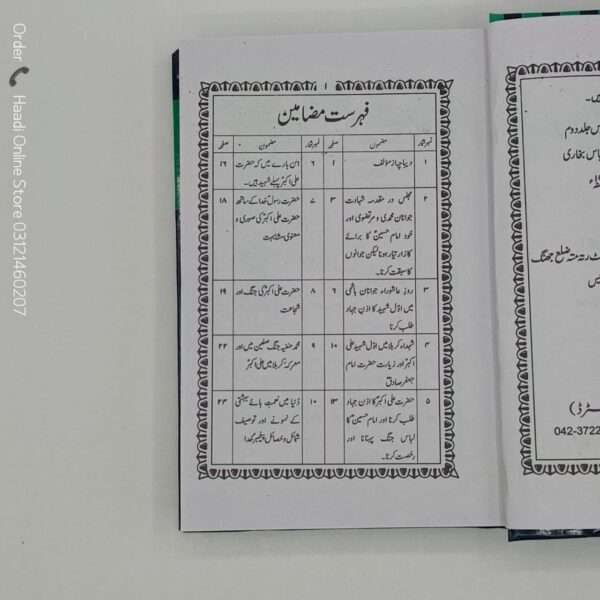 Order Haadi Online Store 03121460207
۱
فہرست مضامین
نمبرشمار مضمون صفحہ نمبرشمار مضمون صفحہ
۱ دیباچہ از مؤلف ۱
۲ مجلس در مقدمہ شہادت ۳
جوانان محمدی و مرتضوی اور
خود امام حسینؑ کا برائے
کارزار تیار ہونا لیکن جوانوں
کا سبقت کرنا۔
۳ روز عاشوراء جوانان ہاشمی ۶
میں اوّل شہید کا اذن جہاد
طلب کرنا
۴ شہداء کربلا میں اوّل شہید علی ۱۰
اکبرؑ اور زیارت حضرت امام
جعفر صادقؑ
۵ حضرت علی اکبرؑ کا اذن جہاد ۱۳
طلب کرنا اور امام حسینؑ کا
لباس جنگ پہنانا اور
رخصت کرنا۔
۶ اس بارے میں کہ حضرت ۱۶
علی اکبرؑ پہلے شہید ہیں۔
۷ حضرت رسولؐ خدا کے ساتھ ۱۸
حضرت علی اکبرؑ کی صوری و
معنوی مشابہت
۸ حضرت علی اکبرؑ کی جنگ اور ۱۹
شجاعت
۹ محمد حنفیہ جنگ صفین میں اور ۲۲
معرکہ کربلا میں علی اکبرؑ
۱۰ دُنیا میں نعمت ہائے بہشتی ۲۳
کے نمونے اور توصیف
شمائل و خصائل پیغمبرؐ خدا
جلد دوم
بخاری
ضلع جھنگ
042-3722